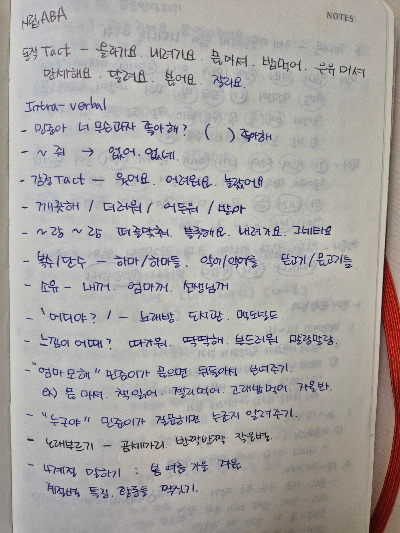 NOTES
사립 ABA
동작 Tact - 올라가요. 내려가요. 물마셔. 밥먹어. 우유마셔
만세해요. 달려요. 불어요. 잘라요.
Intra-verbal
- 민준아 너 무슨과자 좋아해? ( ) 좋아해
- ~ 줘 → 없어. 없네.
- 감정 Tact - 웃어요. 어려워요. 놀랐어요
- 깨끗해 / 더러워 / 어두워 / 밝아
- ~랑 ~랑 뽀뽀해요. 내려가요. 그네타요
- 복수/단수 - 하마/하마들. 악어/악어들 물고기/물고기들
- 소유 - 내꺼. 엄마꺼. 선생님꺼
- '어디야?' - 노래방. 도서관.
- 느낌이 어때? 따가워. 딱딱해. 부드러워. 말랑말랑.
- "엄마 모해" 물으면 보여주기.
ex) 물 마셔. 책 읽어. 젤리먹어. 고래밥먹어.
- "누구야" 질문하면 누군지 알려주기.
- 노래부르기 - 곰세마리. 반짝반짝 작은별.
- 4계절 말하기 : 봄 여름 가을 겨울
계절별 특징. 활동들. 짝짓기.